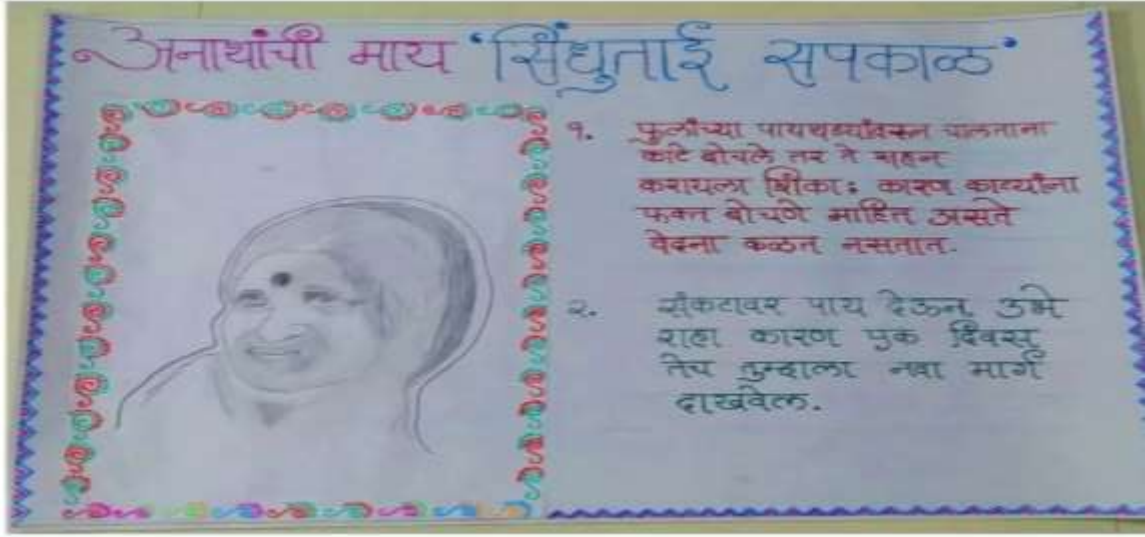 अनाथांची माय 'सिंधुताई सपकाळ'
१. फुलांच्या पायथड्यांवरून चालताना
काटे बोचले तर ते सहन
करायला शिका; कारण काट्यांना
फक्त बोचणे माहित असते
वेदना कळत नसतात.
२. संकटावर पाय देऊन उभे
राहा कारण एक दिवस
तेच तुम्हाला नवा मार्ग
दाखवेल.